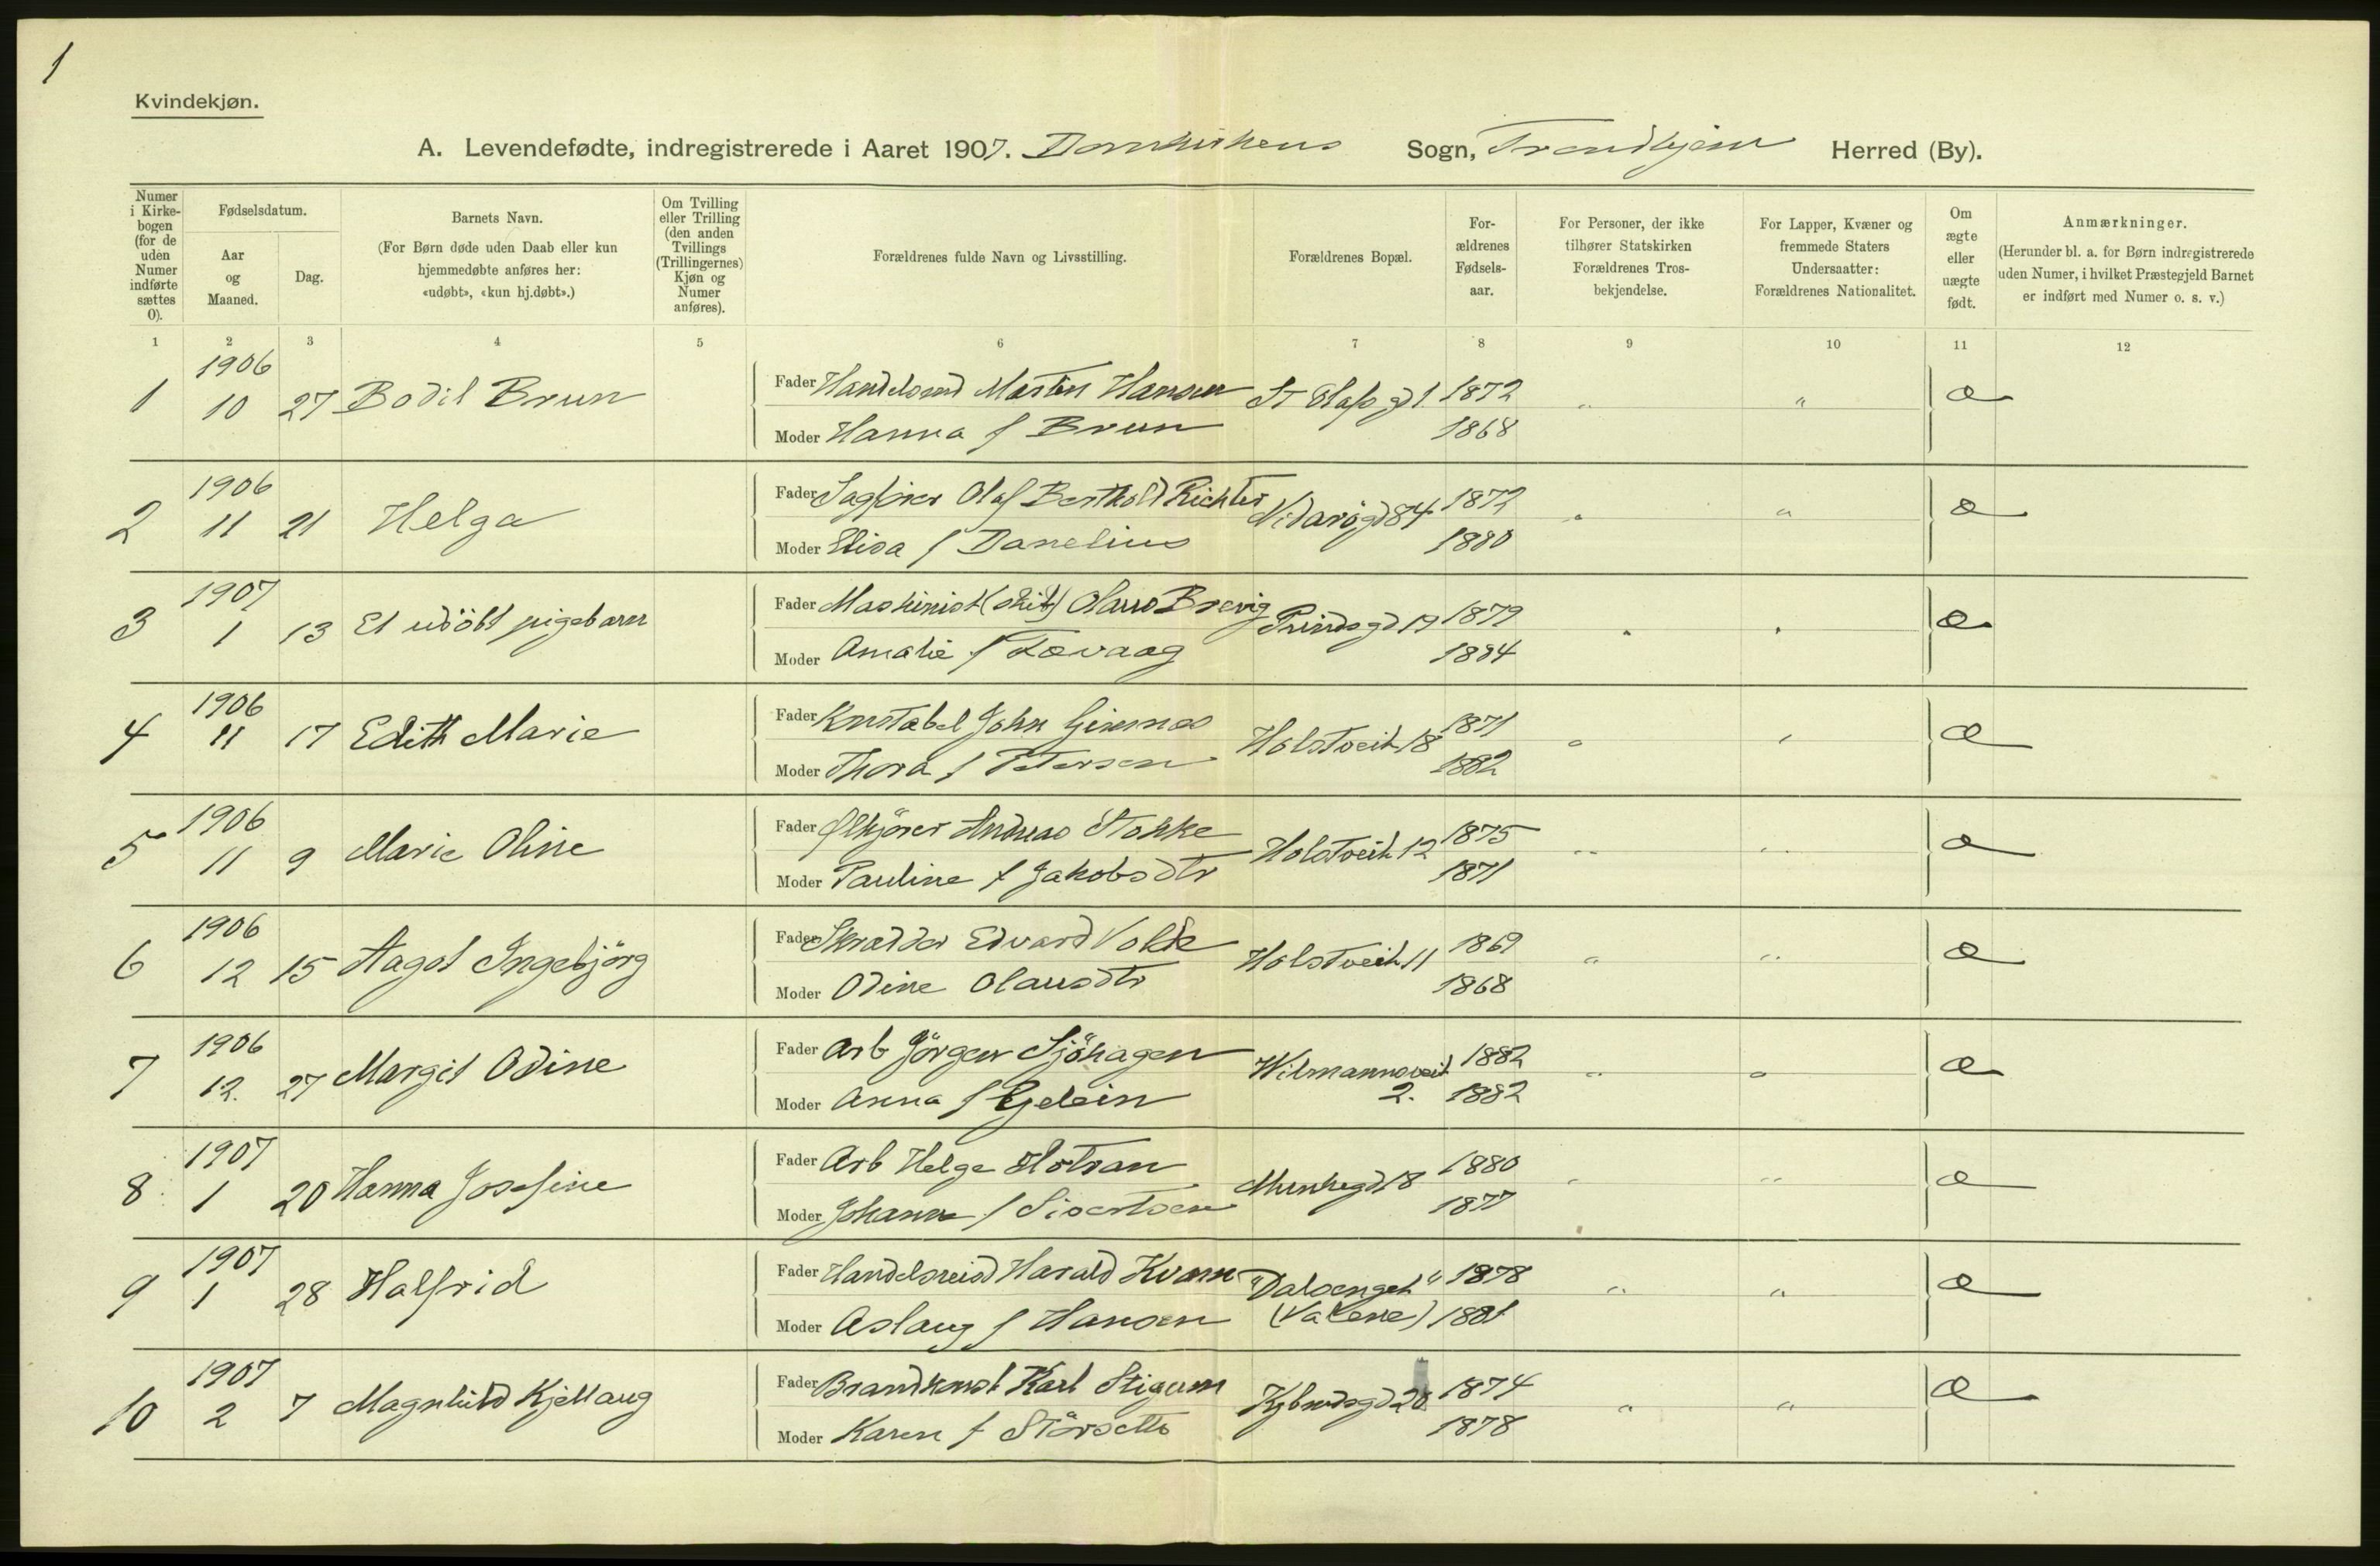 1
Kvindekjøn.
A. Levendefødte, indregistrerede i Aaret 1907. Domkirkens Sogn, Trondhjem Herred (By).
Numer i Kirkebogen (for de uden Numer indførte sættes 0).
Fødselsdatum.
Aar og Maaned.
Dag.
Barnets Navn.
(For Børn døde uden Daab eller kun hjemmedøbte anføres her: «udøbt», «kun hj.døbt».)
Om Tvilling eller Trilling (den anden Tvillings (Trillingernes) Kjøn og Numer anføres).
Forældrenes fulde Navn og Livsstilling.
Forældrenes Bopæl.
For-ældrenes Fødsels-aar.
For Personer, der ikke tilhører Statskirken Forældrenes Tros-bekjendelse.
For Lapper, Kvæner og fremmede Staters Undersaatter: Forældrenes Nationalitet.
Om ægte eller uægte født.
Anmærkninger.
(Herunder bl. a. for Børn indregistrerede uden Numer, i hvilket Præstegjeld Barnet er indført med Numer o. s. v.)
1 2 3 4 5 6 7 8 9 10 11 12
1906
1 10 27 Bodil Brun Fader Handelsmd Martin Hansen St Olafs gd 1. 1872 " " æ
Moder Hanna f Brun 1868
1906
2 11 21 Helga Fader Sagfører Olaf Berthold Richter Vidarsgd 84 1872 " " æ
Moder Elisa f Danelius 1880
1907
3 1 13 Et udöbt pigebarn Fader Maskinist (skib) Olaus Brevig Prinds gd 19 1879 " " æ
Moder Amalie f Tævaag 1884
1906
4 11 17 Edith Marie Fader Konstabel John Gimnes Holstveit 18 1871 " " æ
Moder Thora f Petersen 1882
1906
5 11 9 Marie Oline Fader Ølkjører Andreas Stokke Holstveit 12 1875 " " æ
Moder Pauline f Jakobsdtr 1871
1906
6 12 15 Aagot Ingebjörg Fader Skrædder Edvard Volde Holstveit 11 1869 " " æ
Moder Odine Olausdtr 1868
1906
7 12. 27 Margit Odine Fader Arb Jörgen Sjöhagen Wilmannsveit 2. 1882 " " æ
Moder Anna f Gjelein 1882
1907
8 1 20 Hanna Josefine Fader Arb Helge Hotran Munkegd 18 1880 " " æ
Moder Johanna f Sivertsen 1877
1907
9 1 28 Halfrid Fader Handelsreisd Harald Kvam "Dalsenget" 1878 " " æ
Moder Aslaug f Hansen (Valene) 1881
1907
10 2 7 Magnhild Kjellaug Fader Brandkonst Karl Stigum Kjbmdsgd 20 1874 " " æ
Moder Karen f Störsetts 1878